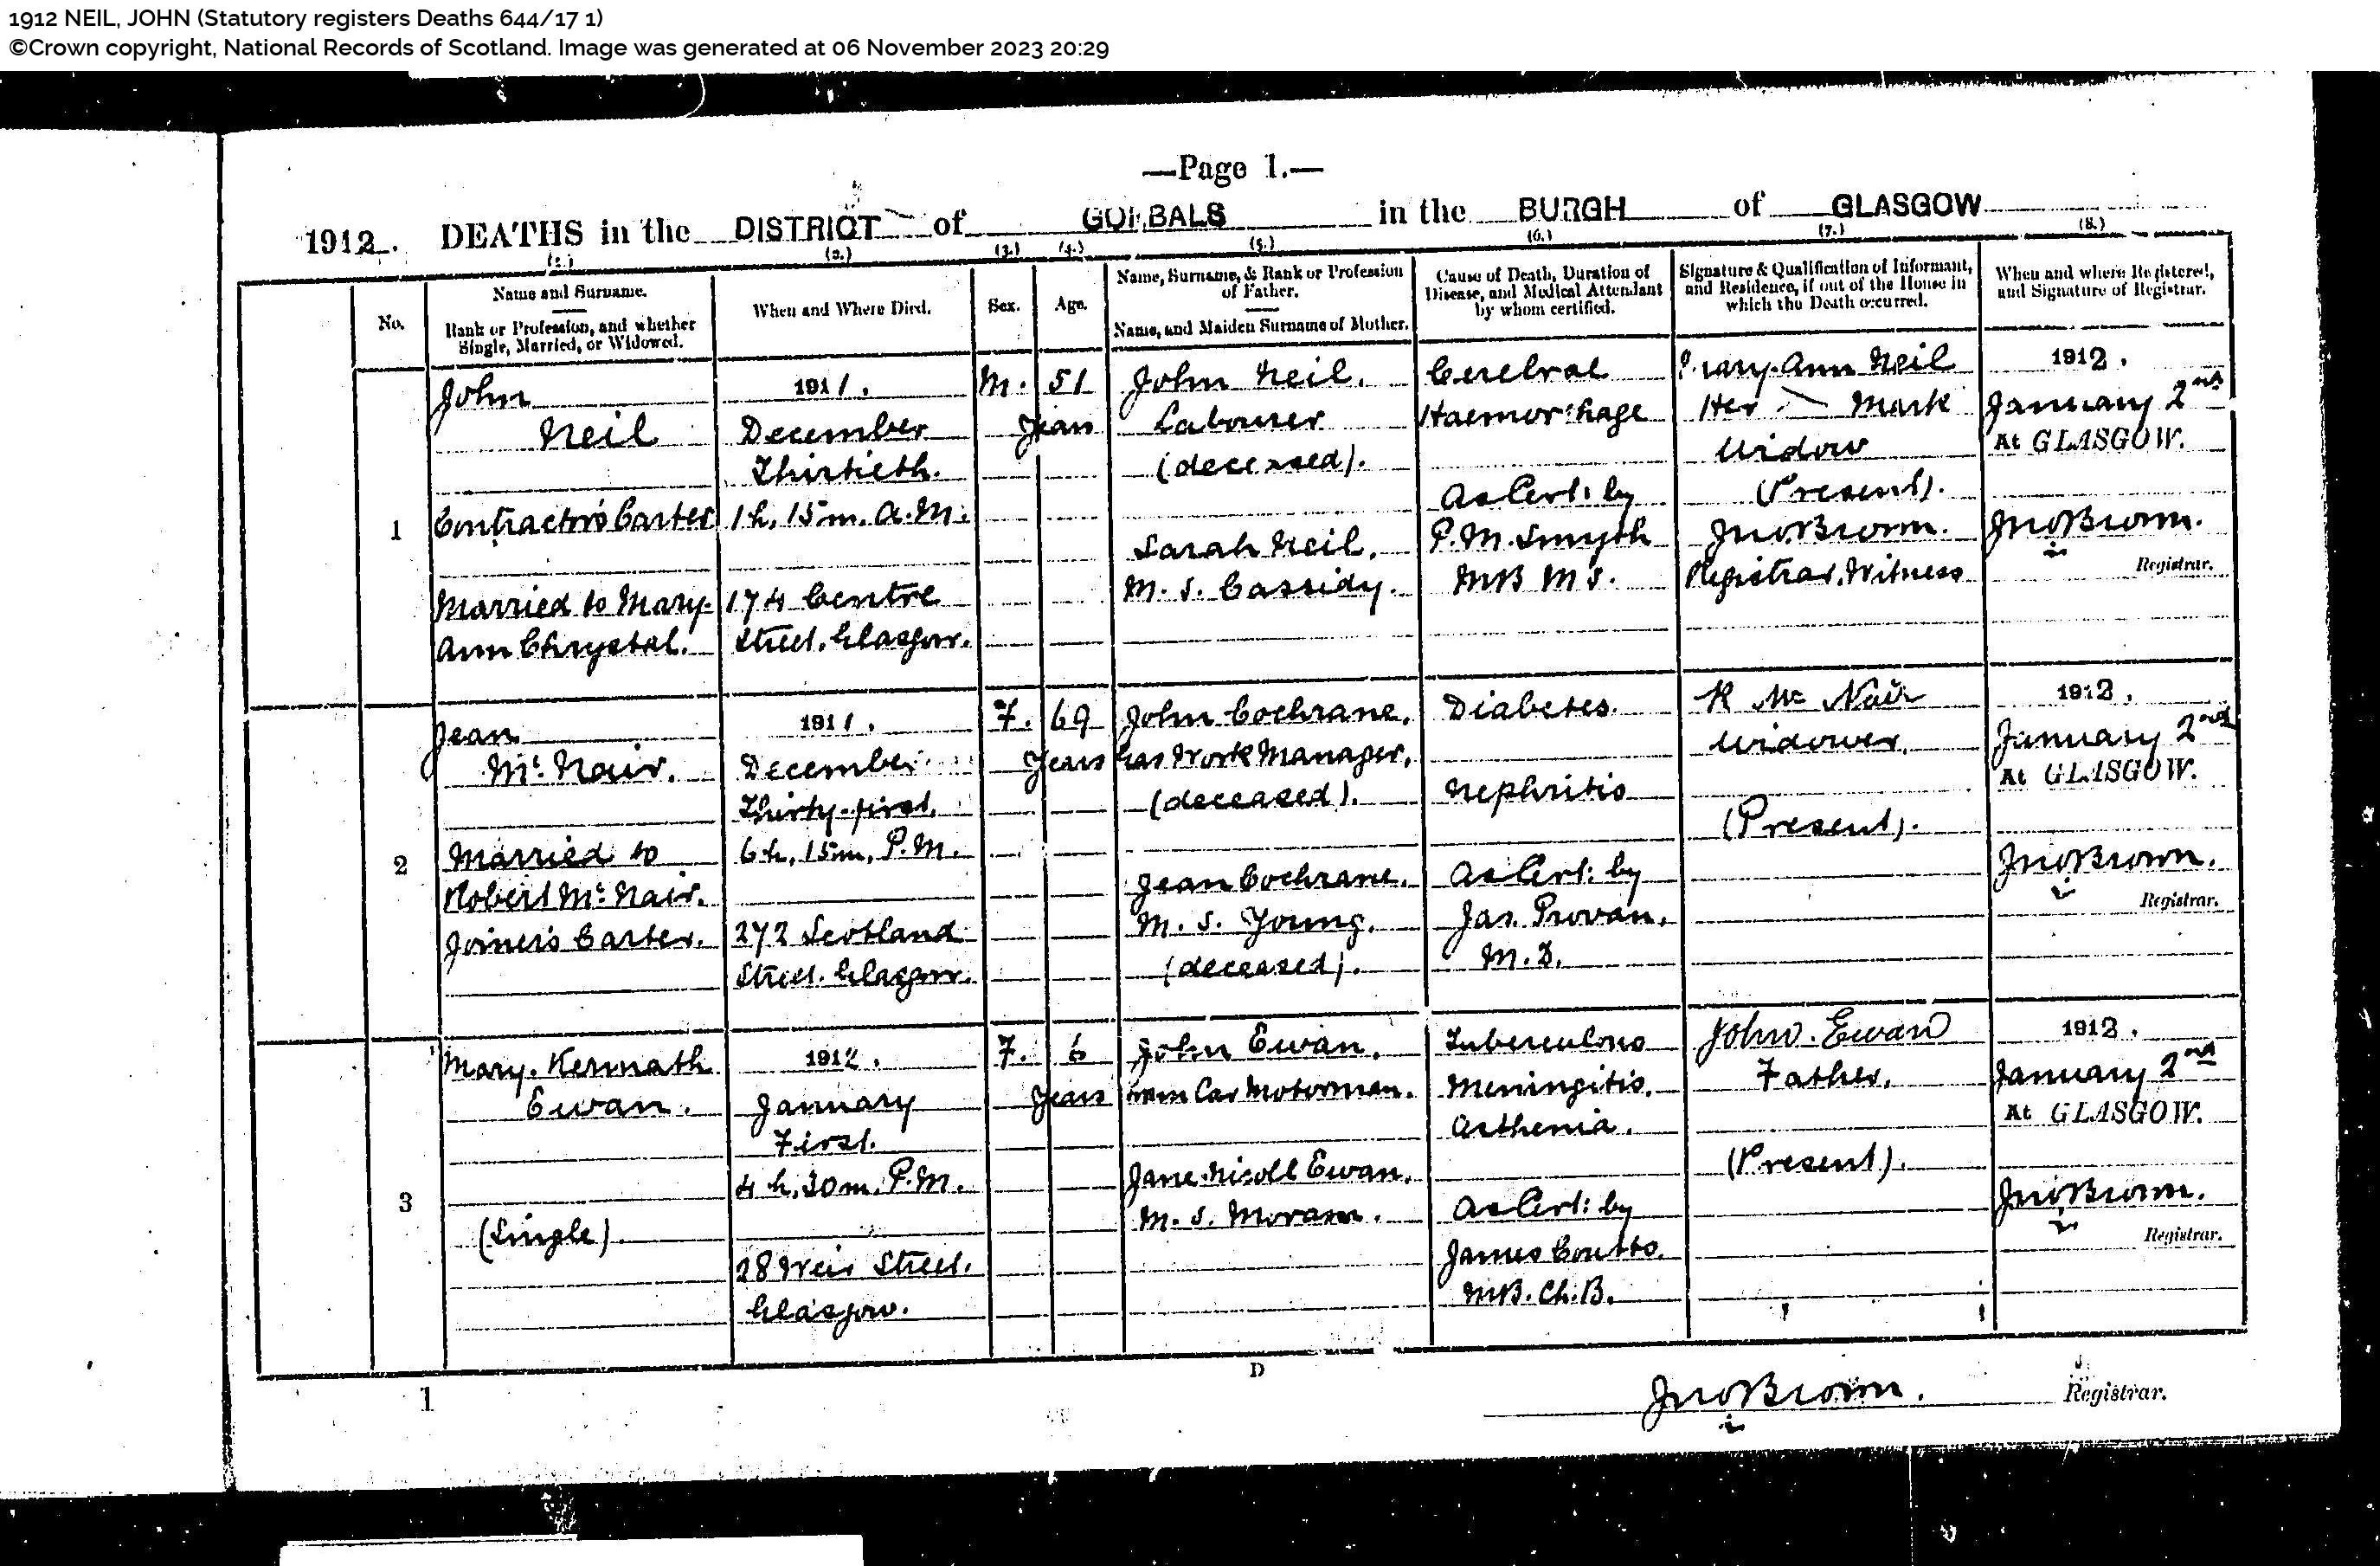 1912 NEIL, JOHN (Statutory registers Deaths 644/17 1)
©Crown copyright, National Records of Scotland. Image was generated at 06 November 2023 20:29
—Page 1.—
1912. DEATHS in the DISTRICT of GORBALS in the BURGH of GLASGOW
(1.) (2.) (3.) (4.) (5.) (6.) (7.) (8.)
No.
Name and Surname.
Rank or Profession, and whether
Single, Married, or Widowed.
When and Where Died.
Sex.
Age.
Name, Surname, & Rank or Profession
of Father.
Name, and Maiden Surname of Mother.
Cause of Death, Duration of
Disease, and Medical Attendant
by whom certified.
Signature & Qualification of Informant,
and Residence, if out of the House in
which the Death occurred.
When and where Registered,
and Signature of Registrar.
1
John
Neil
Contractor's Carter
Married to Mary
Ann Chrystal.
1911.
December
Thirtieth.
1h. 15m. A.M.
174 Centre
Street. Glasgow.
M.
51
Years
John Neil.
Labourer
(deceased).
Sarah Neil.
M. S. Cassidy.
Cerebral
Haemorrhage
As Cert: by
P. M. Smyth
MB MS.
Mary Ann Neil
Her Mark
Widow
(Present).
Jno Brown.
Registrar. Witness
1912.
January 2nd
At GLASGOW.
Jno Brown.
Registrar.
2
Jean
McNair.
Married to
Robert McNair.
Joiner's Carter.
1911.
December
Thirty-first.
6h. 15m. P.M.
272 Scotland
Street. Glasgow.
F.
69
Years
John Cochrane,
Gas Work Manager.
(deceased).
Jean Cochrane.
M. S. Young.
(deceased).
Diabetes.
Nephritis
As Cert: by
Jas. Provan.
M.D.
R McNair
Widower.
(Present).
1912.
January 2nd
At GLASGOW.
Jno Brown.
Registrar.
3
Mary
Ewan.
(Single)
1912.
January
First.
4h. 30m. P.M.
28 Weir Street.
Glasgow.
F.
6
Years
John Ewan.
Tram Car Motorman.
Jane Nicoll Ewan.
M. S.
Tuberculous
Meningitis.
Asthenia.
As Cert: by
James Coutts.
MB. Ch.B.
John Ewan
Father.
(Present).
1912.
January 2nd
At GLASGOW.
Jno Brown.
Registrar.
1
D
Jno Brown.
Registrar.